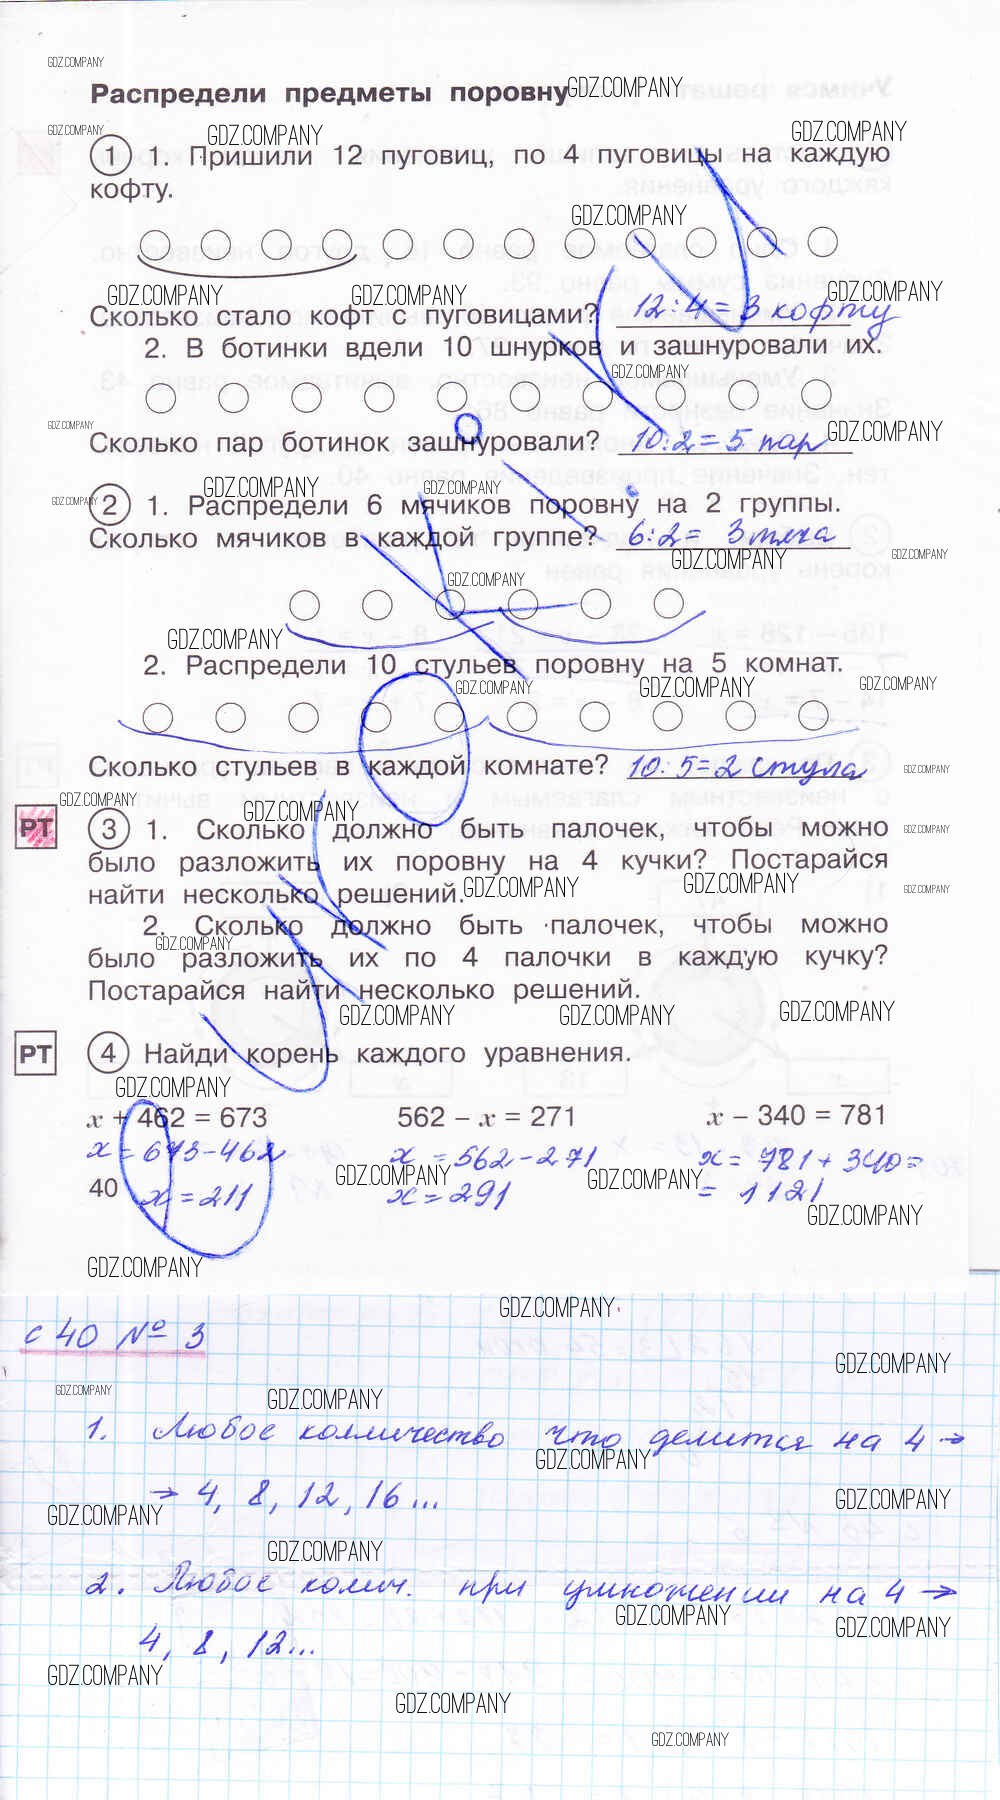 GDZ.COMPANY
Распредели предметы поровну
GDZ.COMPANY
GDZ.COMPANY
GDZ.COMPANY
GDZ.COMPANY
1 1. Пришили 12 пуговиц, по 4 пуговицы на каждую
кофту.
GDZ.COMPANY
GDZ.COMPANY
GDZ.COMPANY
GDZ.COMPANY
Сколько стало кофт с пуговицами? 12:4=3 кофту
2. В ботинки вдели 10 шнурков и зашнуровали их.
GDZ.COMPANY
GDZ.COMPANY
GDZ.COMPANY
Сколько пар ботинок зашнуровали? 10:2=5 пар
GDZ.COMPANY
GDZ.COMPANY
GDZ.COMPANY
2 1. Распредели 6 мячиков поровну на 2 группы.
Сколько мячиков в каждой группе? 6:2= 3 мяча
GDZ.COMPANY
GDZ.COMPANY
GDZ.COMPANY
GDZ.COMPANY
2. Распредели 10 стульев поровну на 5 комнат.
GDZ.COMPANY
GDZ.COMPANY
GDZ.COMPANY
Сколько стульев в каждой комнате? 10:5=2 стула
GDZ.COMPANY
GDZ.COMPANY
GDZ.COMPANY
РТ 3 1. Сколько должно быть палочек, чтобы можно
GDZ.COMPANY
было разложить их поровну на 4 кучки? Постарайся
найти несколько решений.
GDZ.COMPANY
GDZ.COMPANY
GDZ.COMPANY
2. Сколько должно быть палочек, чтобы можно
GDZ.COMPANY
было разложить их по 4 палочки в каждую кучку?
Постарайся найти несколько решений.
GDZ.COMPANY
GDZ.COMPANY
GDZ.COMPANY
РТ 4 Найди корень каждого уравнения.
GDZ.COMPANY
x + 462 = 673 562 – x = 271 x – 340 = 781
x = 673-462 x = 562-271 x = 781+340=
GDZ.COMPANY
GDZ.COMPANY
40 x = 211 x = 291 = 1121
GDZ.COMPANY
GDZ.COMPANY
GDZ.COMPANY
с 40 № 3
GDZ.COMPANY
GDZ.COMPANY
GDZ.COMPANY
1. Любое колличество что делится на 4 →
GDZ.COMPANY
→ 4, 8, 12, 16...
GDZ.COMPANY
GDZ.COMPANY
GDZ.COMPANY
2. Любое колич. при умножении на 4 →
GDZ.COMPANY
GDZ.COMPANY
4, 8, 12...
GDZ.COMPANY
GDZ.COMPANY
GDZ.COMPANY